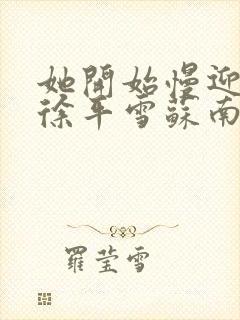 她開始慢迎
徐平雪蘇南
羅瑩雪